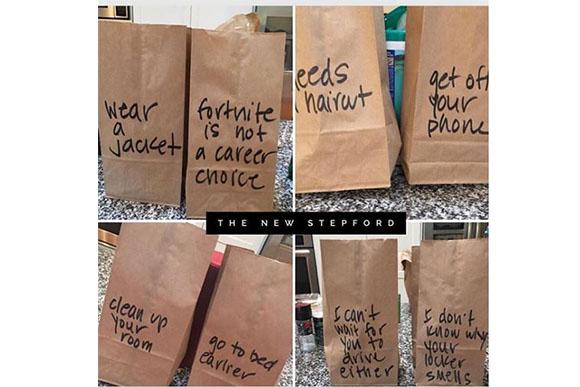 wear
a
jacket
fortnite
is not
a career
choice
eeds
haircut
get off
your
phone
THE NEW STEPFORD
clean up
your
room
go to bed
earlier
I can't
wait for
you to
drive
either
I don't
know why
your
locker
smells